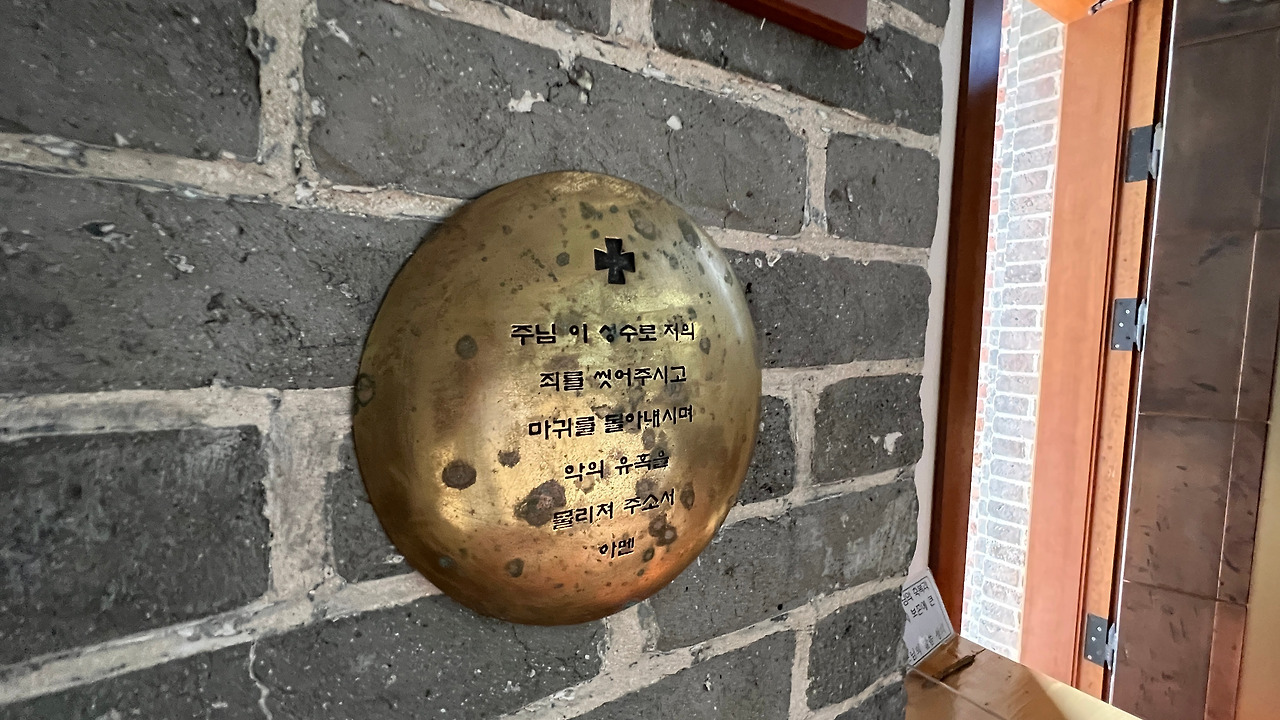 주님 이 성수로 저의
죄를 씻어주시고
마귀를 몰아내시며
악의 유혹을
물리쳐 주소서
아멘